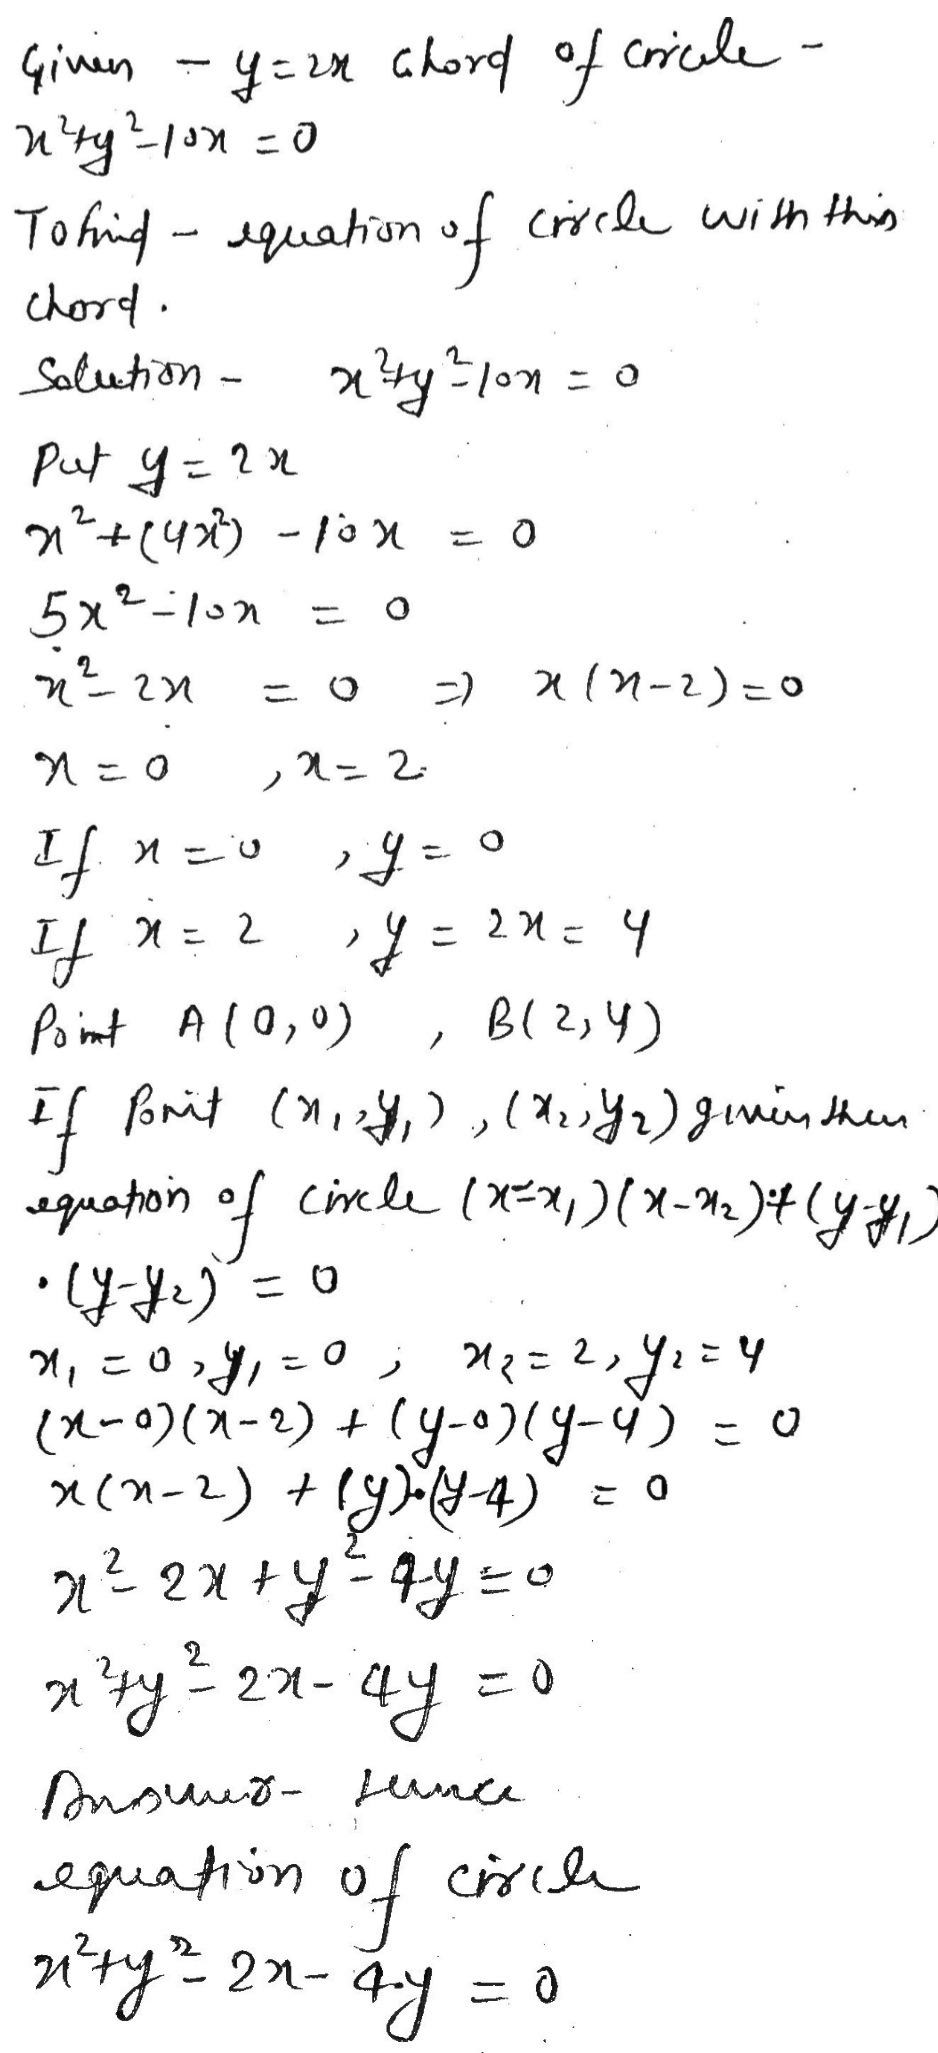 Given - y=2x Chord of circle -
x²+y²-10x=0
To find - equation of circle with this
chord.
Solution - x²+y²-10x = 0
Put y = 2x
x²+(4x²) -10x = 0
5x²-10x = 0
x²-2x = 0 ⇒ x(x-2)=0
x=0 , x=2
If x=0 , y=0
If x=2 , y = 2x = 4
Point A(0,0) , B(2,4)
If Point (x₁,y₁), (x₂,y₂) given then
equation of circle (x-x₁)(x-x₂)+(y-y₁)
·(y-y₂) = 0
x₁=0, y₁=0 ; x₂=2, y₂=4
(x-0)(x-2) + (y-0)(y-4) = 0
x(x-2) + (y)·(y-4) = 0
x²-2x+y²-4y=0
x²+y²-2x-4y=0
Answer- Hence
equation of circle
x²+y²-2x-4y=0